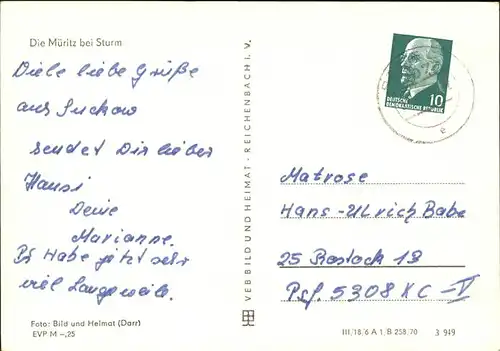 Die Müritz bei Sturm
Viele liebe Grüße
aus Suckow
sendet Dir lieber
Hansi
Deine
Marianne.
PS Habe jetzt sehr
viel Langeweile.
Foto: Bild und Heimat (Darr)
EVP M –,25
VEB BILD UND HEIMAT · REICHENBACH I. V.
10
DEUTSCHE
DEMOKRATISCHE REPUBLIK
Matrose
Hans-Ulrich Babe
25 Rostock 13
Psf. 5308 XC-V
III/18/6 A 1/B 258/70 3 949